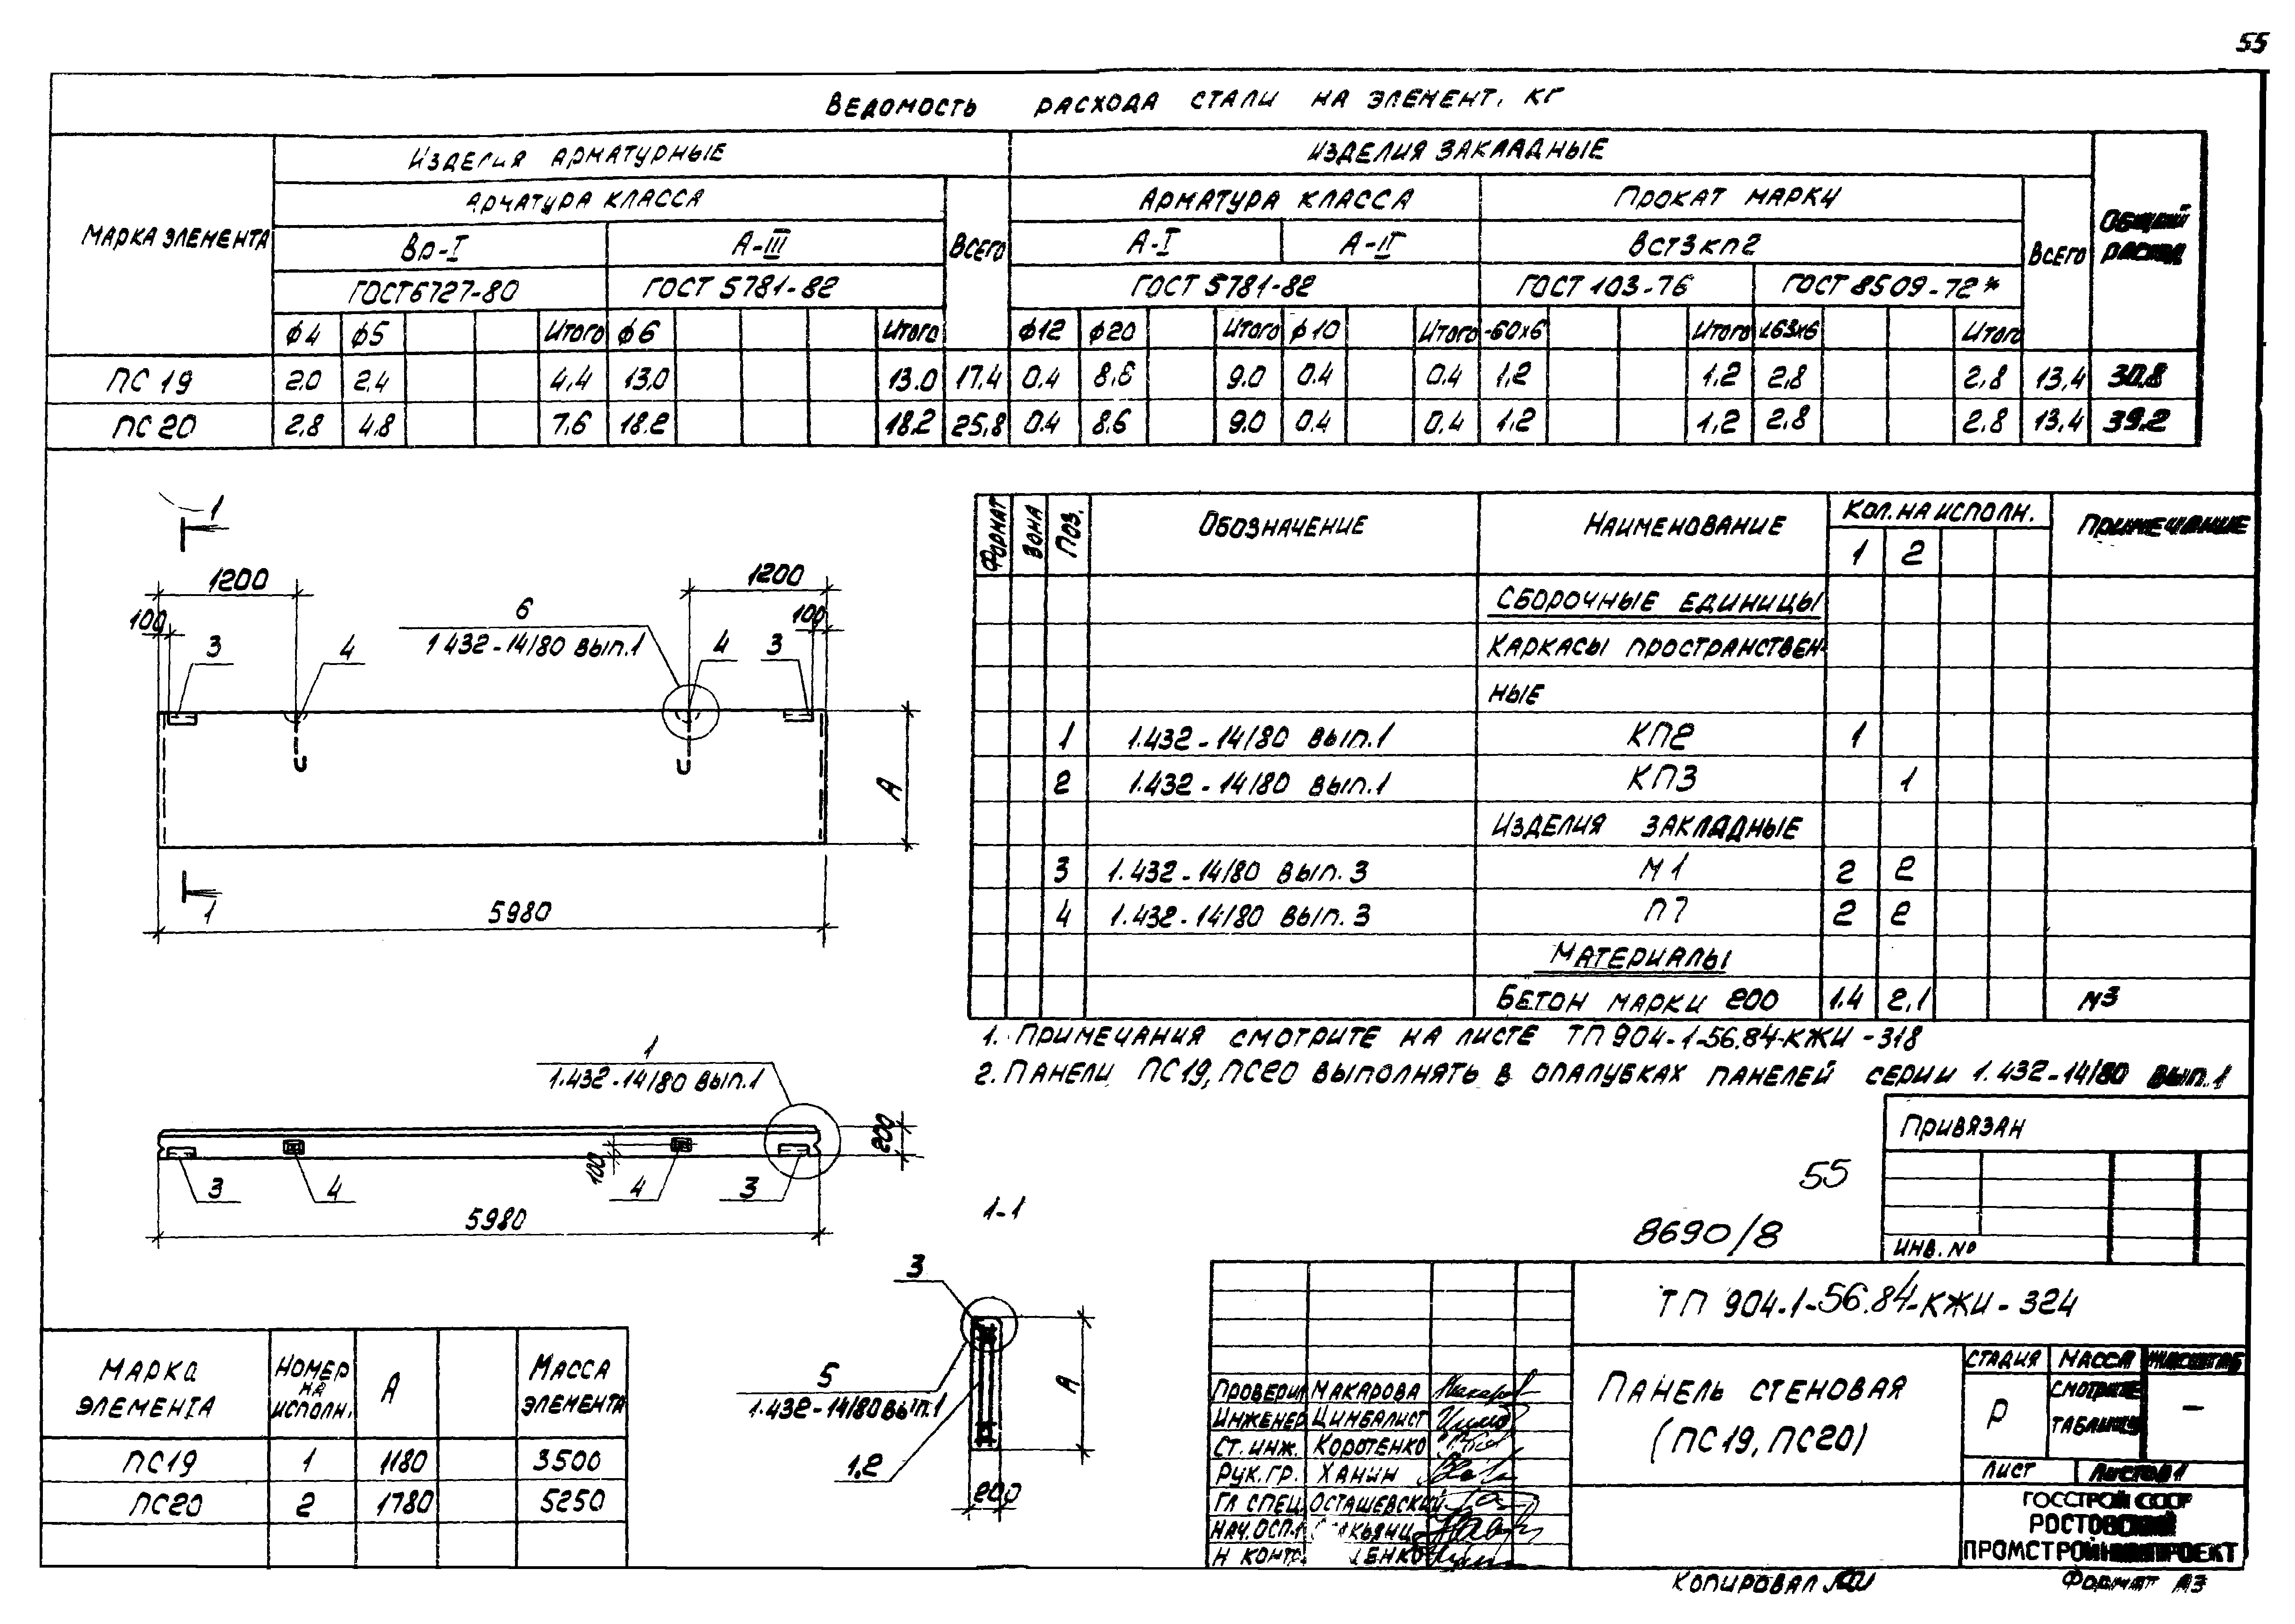 55
Ведомость расхода стали на элемент, кг
Марка элемента
Изделия арматурные
Изделия закладные
Общий расход
Арматура класса
Всего
Арматура класса
Прокат марки
Всего
Вр-I
А-III
А-I
А-II
ВСт3кп2
ГОСТ 6727-80
ГОСТ 5781-82
ГОСТ 5781-82
ГОСТ 103-76
ГОСТ 8509-72*
ф4 ф5 Итого ф6 Итого ф12 ф20 Итого ф10 Итого -60х6 Итого L63х6 Итого
ПС 19 2.0 2,4 4,4 13.0 13.0 17.4 0.4 8.6 9.0 0.4 0.4 1,2 1,2 2,8 2,8 13,4 30,8
ПС 20 2,8 4,8 7,6 18.2 18.2 25,8 0.4 8.6 9.0 0.4 0.4 1,2 1,2 2,8 2.8 13,4 39.2
1
1200
1200
100
100
3
4
6
1.432-14/80 вып.1
4
3
А
1
5980
Формат Зона Поз. Обозначение Наименование Кол. на исполн. Примечание
1 2
Сборочные единицы
Каркасы пространствен-
ные
1 1.432-14/80 вып.1 КП2 1
2 1.432-14/80 вып.1 КП3 1
Изделия закладные
3 1.432-14/80 вып.3 М1 2 2
4 1.432-14/80 вып.3 П7 2 2
Материалы
Бетон марки 200 1.4 2,1 м3
1. Примечания смотрите на листе ТП 904-1-56.84-КЖИ-318
2. Панели ПС19, ПС20 выполнять в опалубках панелей серии 1.432-14/80 вып.1
1
1.432-14/80 вып.1
200
100
3
4
4
3
5980
1-1
3
5
1.432-14/80 вып.1
1,2
А
200
55
8690/8
Привязан
Инв. №
Марка элемента Номер на исполн. А Масса элемента
ПС19 1 1180 3500
ПС20 2 1780 5250
ТП 904-1-56.84-КЖИ-324
Панель стеновая
(ПС19, ПС20)
Стадия Масса Масштаб
Р смотрите таблицу –
Лист Листов 1
Проверил Макарова
Инженер Цимбалист
Ст. инж. Коротенко
Рук. гр. Ханин
Гл. спец. Осташевский
Нач. ОСП-1
Н контр.
ГОССТРОЙ СССР
РОСТОВСКИЙ
ПРОМСТРОЙНИИПРОЕКТ
Копировал
Формат А3